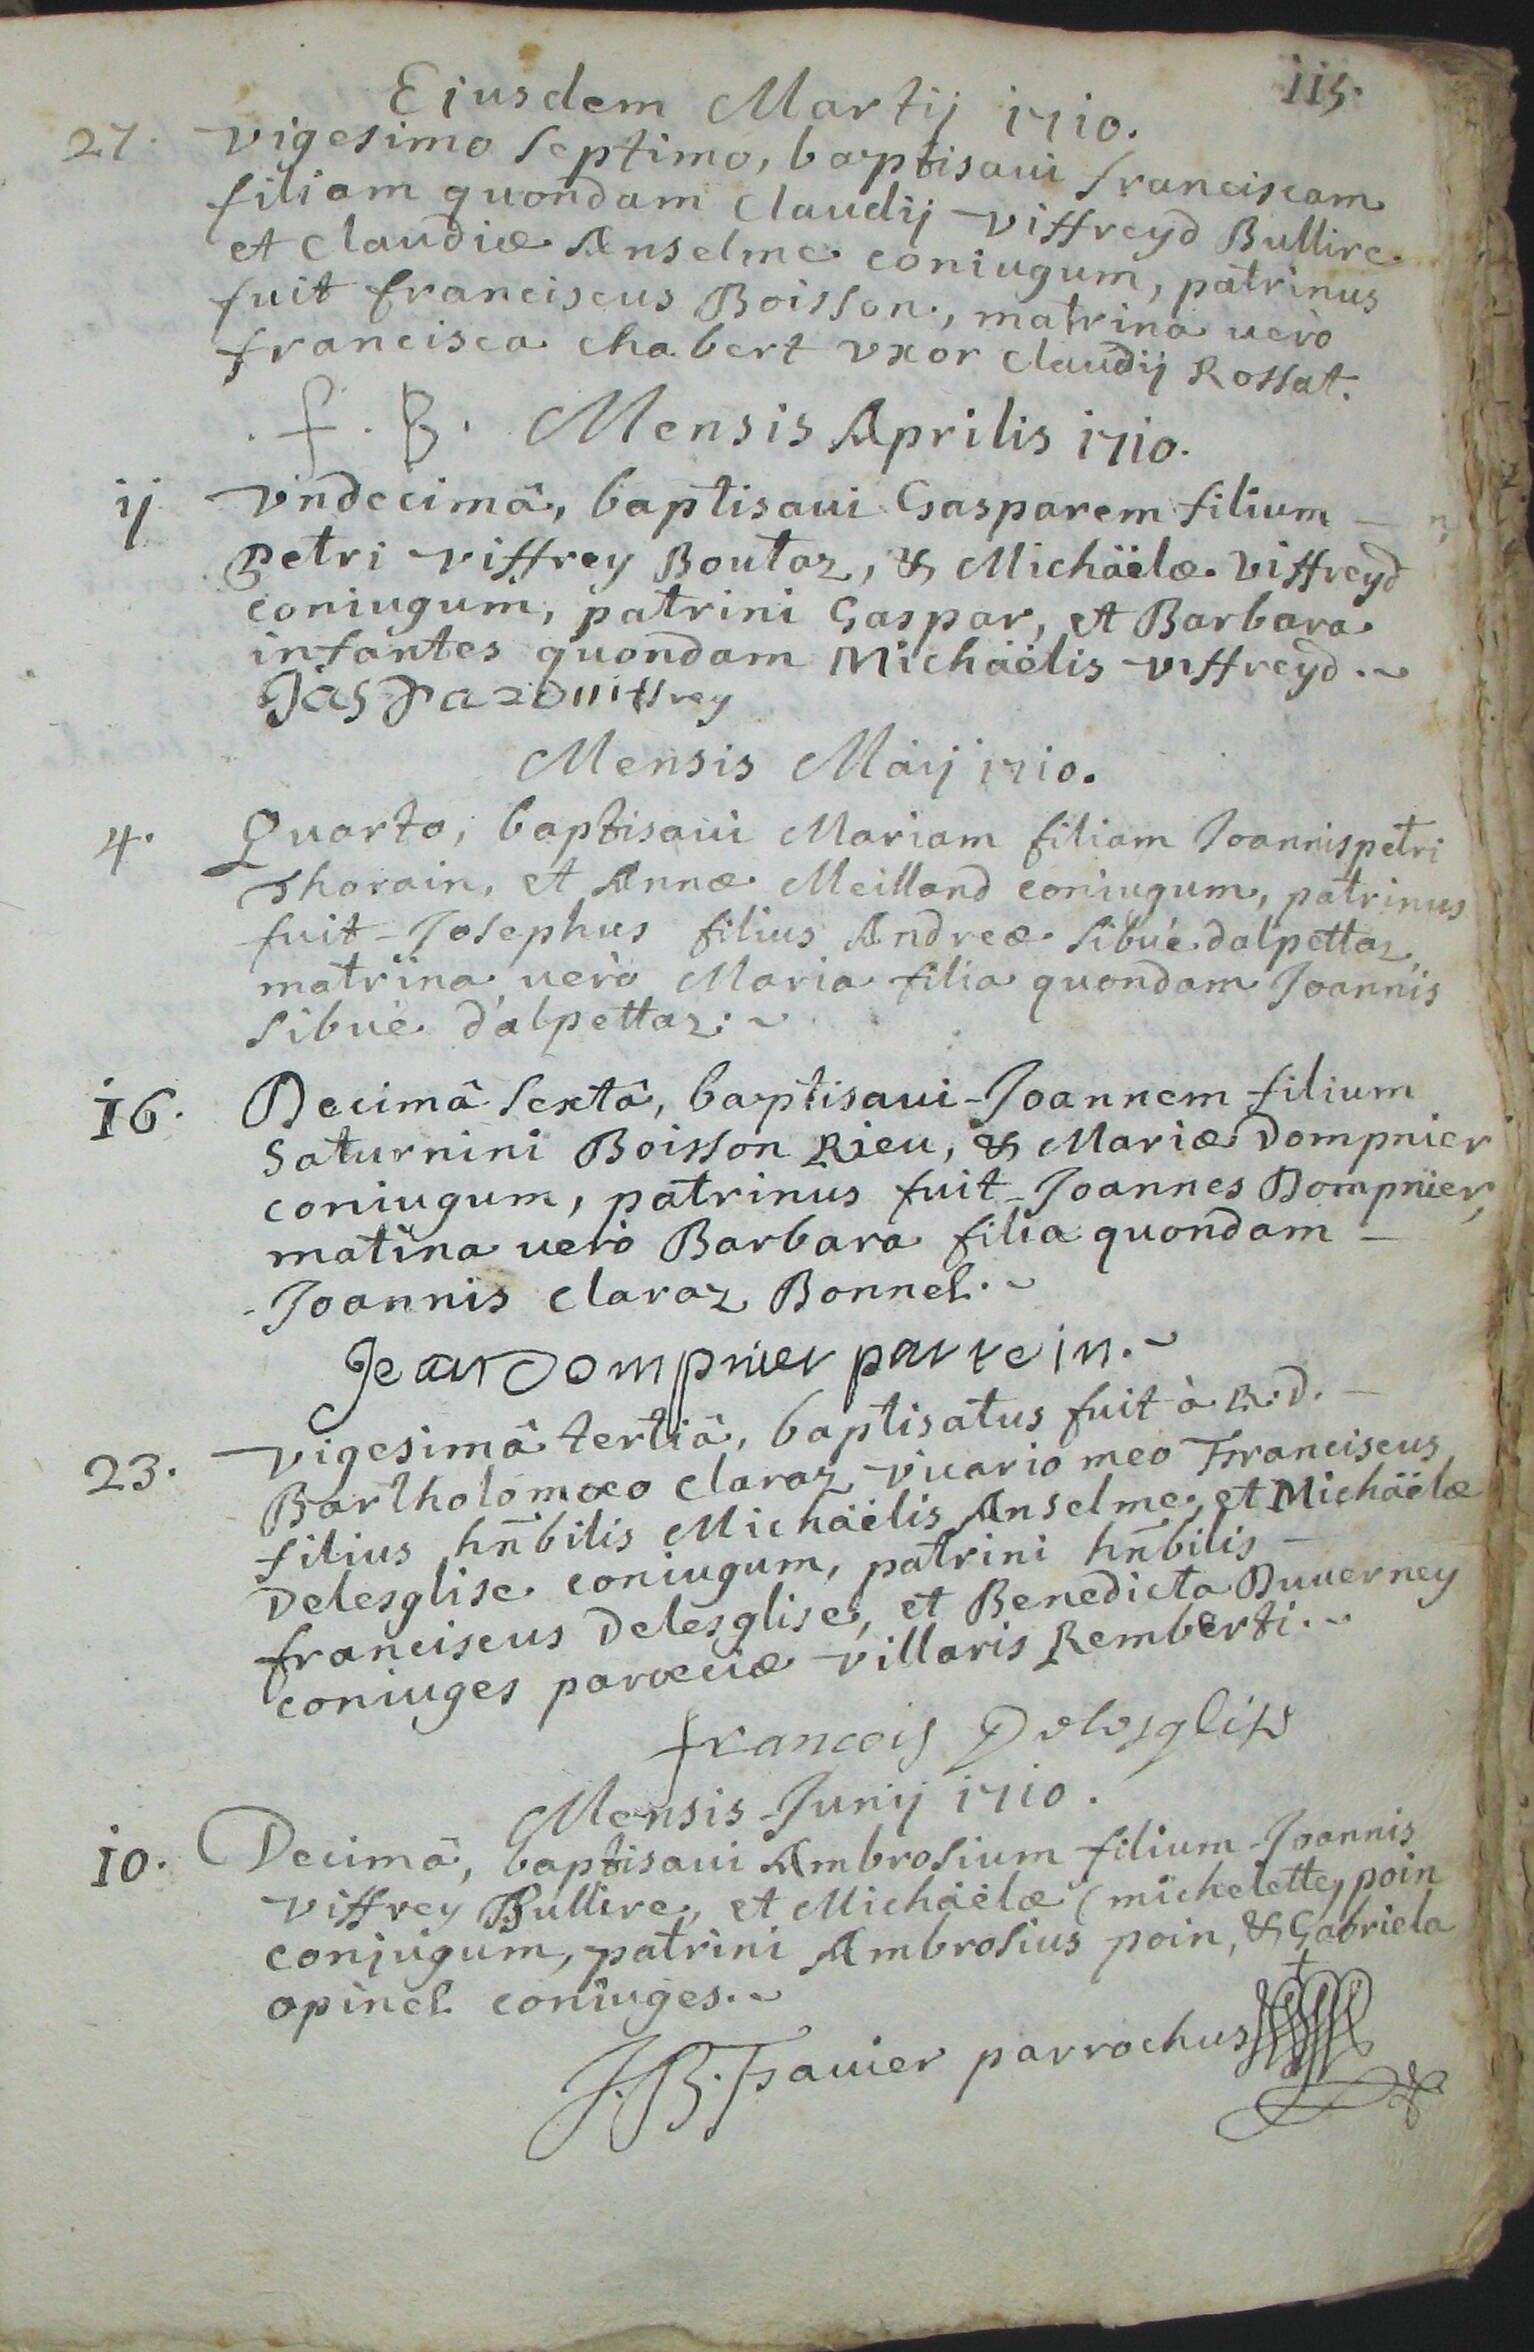 115.
Ejusdem Martij 1710.
27. vigesimo septimo, baptisaui franciscam
filiam quondam Claudij viffreyd Bullire
et Claudiæ Anselme coniugum, patrinus
fuit franciscus Boisson, matrina uerò
francisca chabert vxor Claudij Rossat.
. f . B . Mensis Aprilis 1710.
ij vndecimâ, baptisaui Gasparem filium
Petri viffrey Boutaz, & Michäelæ viffreyd
coniugum, patrini Gaspar, et Barbara
infantes quondam Michäelis viffreyd.
Mensis Maij 1710.
4. Quarto, baptisaui Mariam filiam Joannispetri
Thorain, et Annæ Meilland coniugum, patrinus
fuit Josephus filius Andreæ sibué dalpettaz
matrina uerò Maria filia quondam Joannis
sibué d'alpettaz.
16. Decimâ sextâ, baptisaui Joannem filium
Saturnini Boisson Rieu, & Mariæ Dompnier
coniugum, patrinus fuit Joannes Dompnier,
matina uerò Barbara filia quondam
Joannis Claraz Bonnel.
Jean Dompnier parrein.
23. vigesimâ tertiâ, baptisatus fuit à R.D.
Bartholomæo Claraz vicario meo Franciscus
filius hn̄bilis Michäelis Anselme, et Michäelæ
Delesglise coniugum, patrini hn̄bilis
franciscus Delesglise, et Benedicta Duuerney
coniuges parœciæ villaris Remberti.
francois Delesglise
Mensis Junij 1710.
10. Decimâ, baptisaui Ambrosium filium Joannis
viffrey Bullire, et Michäelæ (michelette) poin
conjugum, patrini Ambrosius poin, & Gabriela
opinel coniuges.
J.B. Favier parrochus